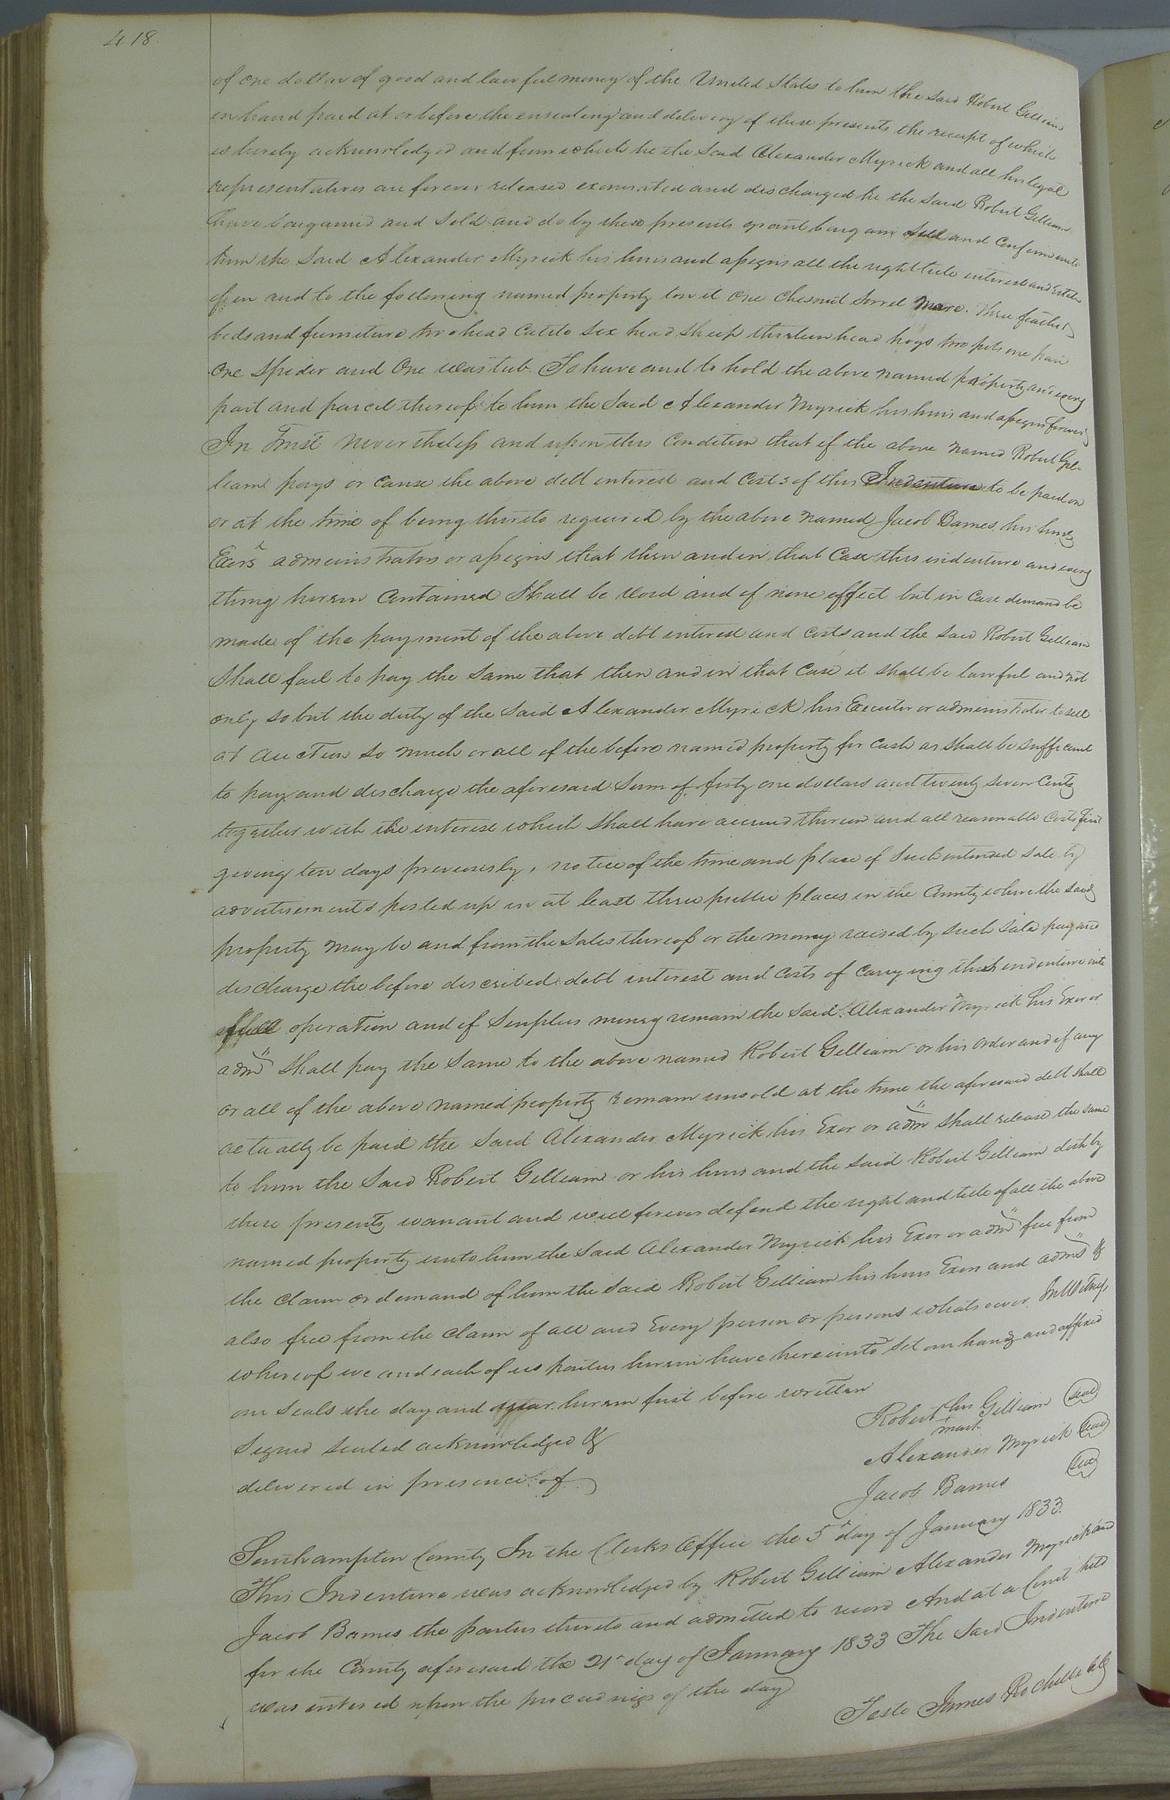 418
of one dollar of good and lawful money of the United States to him the said Robert Gilliam
in hand paid at or before the ensealing and delivery of these presents the receipt of which
is hereby acknowledged and from which he the Said Alexander Myrick and all his legal
representatives are forever released exonerated and discharged he the said Robert Gilliam
have bargained and Sold and do by these presents grant bargain Sell and Confirm unto
him the Said Alexander Myrick his heirs and assigns all the right title interest and Estate
of in and to the following named property towit One Chesnut Sorrel Mare. Three feather
beds and furniture two head Cattle Six head Sheep thirteen head hogs two pots one pair
One Spider and One wastub To have and to hold the above named property and every
part and parcel thereof to him the Said Alexander Myrick his heirs and assigns forever
In Trust nevertheless and upon this Condition that if the above named Robert Gil-
liam pays or cause the above debt interest and Costs of this Indenture to be paid on
or at the time of being thereto required by the above named Jacob Barnes his heirs
Exors administrators or assigns that then and in that Case this indenture and every
thing herein Contained Shall be Void and of none effect but in Case demand be
made of the payment of the above debt interest and costs and the said Robert Gilliam
Shall fail to pay the Same that then and in that Case it shall be lawful and not
only so but the duty of the Said Alexander Myrick his Executor or administrator to sell
at auction so much or all of the before named property for Cash as shall be sufficient
to pay and discharge the aforesaid Sum of forty one dollars and twenty seven Cents
together with the interest which Shall have accrued thereon and all reasonable Costs first
giving ten days previously, notice of the time and place of Such intended sale by
advertisements posted up in at least three public places in the County where the said
property may be and from the Sales thereof or the money raised by such Sale pay and
discharge the before described debt interest and Costs of Carrying this indenture into
full operation and if Surplus money remain the Said Alexander Myrick his Exor or
admr Shall pay the Same to the above named Robert Gilliam or his order and if any
or all of the above named property remain unsold at the time the aforesaid debt Shall
actually be paid the Said Alexander Myrick his Exor or admr shall release the same
to him the Said Robert Gilliam or his heirs and the said Robert Gilliam doth by
these presents warrant and will forever defend the right and title of all the above
named property unto him the Said Alexander Myrick his Exor or admr free from
the Claim or demand of him the said Robert Gilliam his heirs Exors and admrs &
also free from the Claim of all and Every person or persons whatsoever. In Witness
whereof we and each of us parties herein have hereunto set our hands and affixed
our Seals the day and year herein first before written
Signed Sealed acknowledged &
delivered in presence of
Robert his mark Gilliam seal
Alexander Myrick seal
Jacob Barnes seal
Southampton County In the Clerks Office the 5th day of January 1833.
This Indenture was acknowledged by Robert Gilliam Alexander Myrick and
Jacob Barnes the parties thereto and admitted to record And at a Court held
for the County aforesaid the 21st day of January 1833 The Said Indenture
was entered upon the proceedings of the day
Teste James Rochelle clk